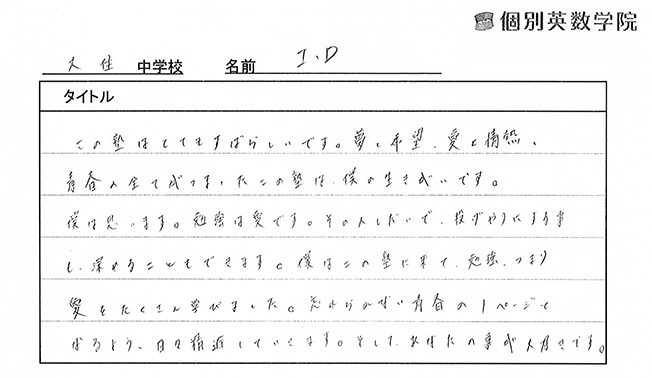 個別英数学院
久住 中学校 名前 I.D
タイトル
この塾はとてもすばらしいです。夢と希望、愛と情熱、
青春の全てがつまったこの塾は、僕の生きがいです。
僕は思います。勉強は愛です。その人しだいで、投げやりにする事
も、深めることもできます。僕はこの塾に来て、勉強、つまり
愛をたくさん学びました。忘れられない青春の1ページと
なるよう、日々精進していきます。そして、あなたの事が大好きです。